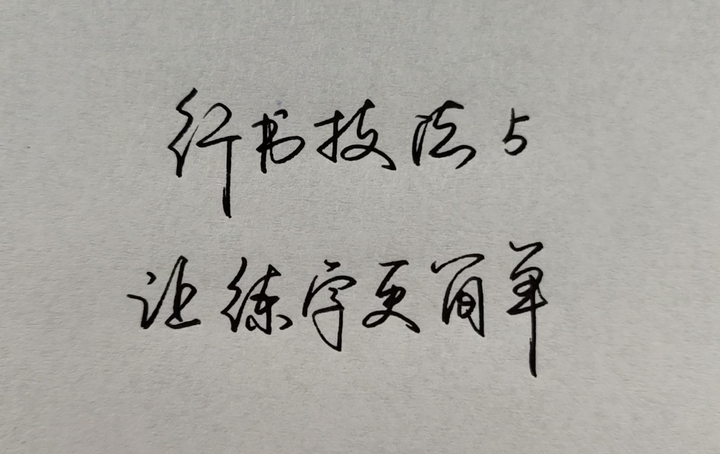 行书技法5
让练字更简单